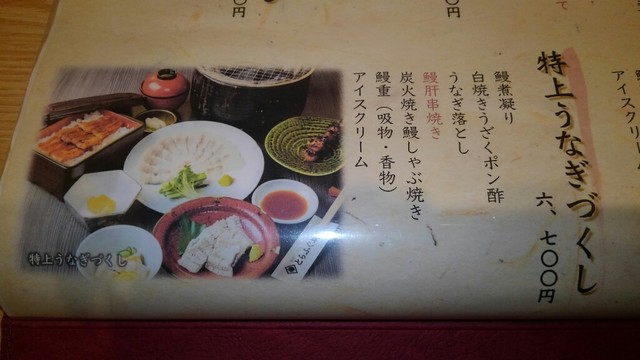 特上うなぎづくし
六、七〇〇円
鰻煮凝り
白焼きうざくポン酢
うなぎ落とし
鰻肝串焼き
炭火焼き鰻しゃぶ焼き
鰻重（吸物・香物）
アイスクリーム
特上うなぎづくし
とらふぐ
アイスクリーム
円
円
て